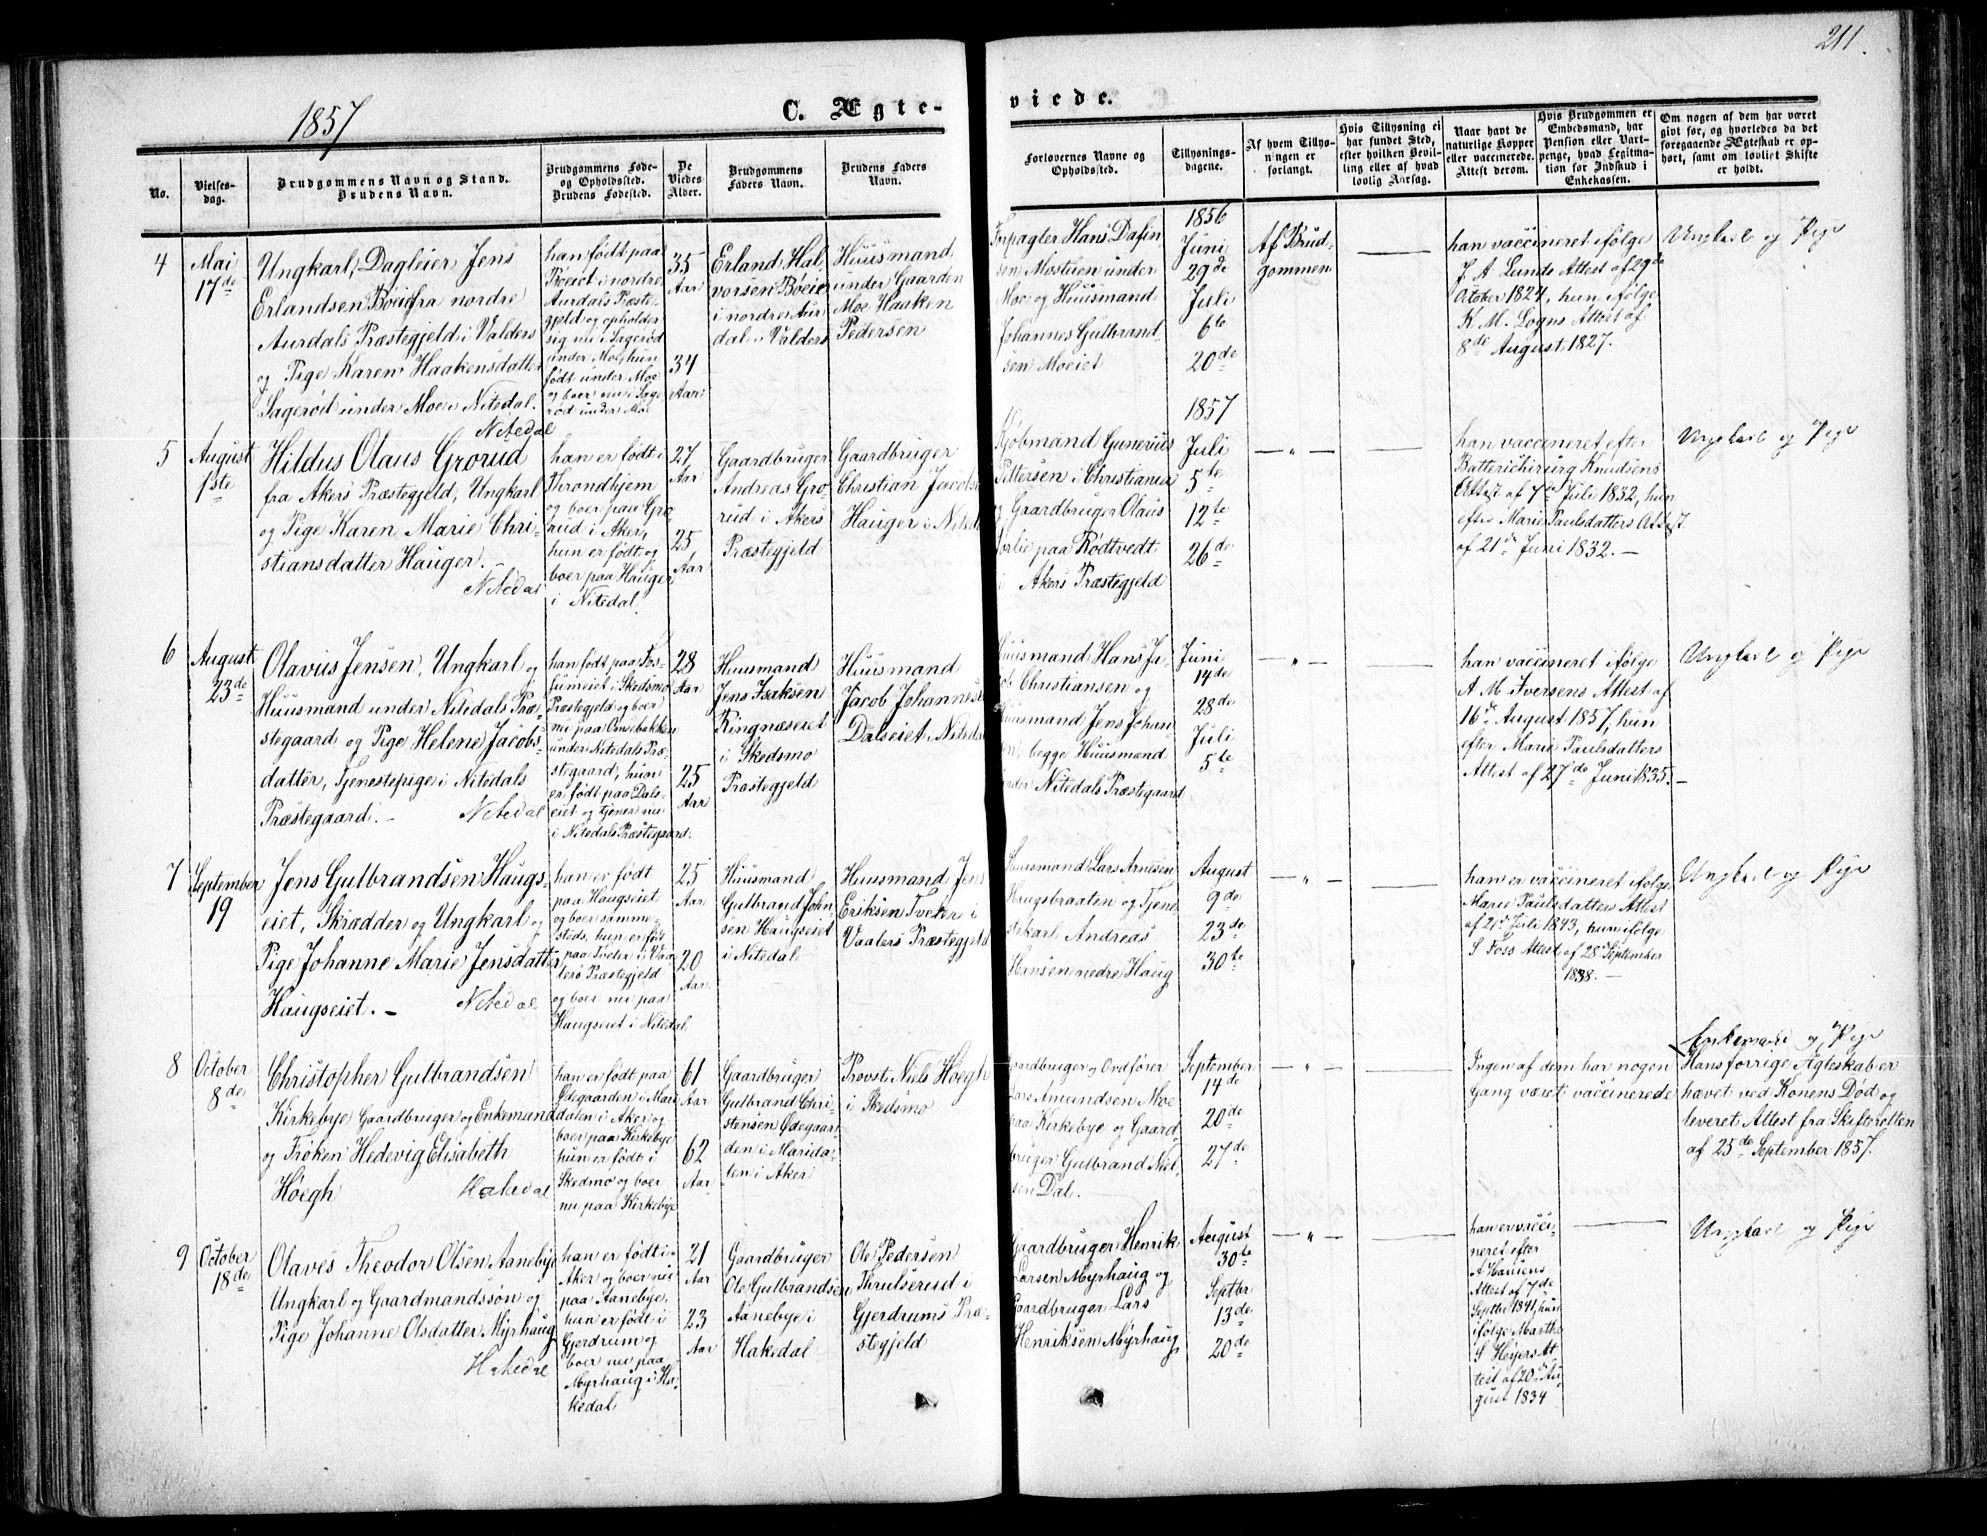 211.
1857
C. Ægte-
viede.
No.
Vielses-
dag.
Brudgommens Navn og Stand.
Brudens Navn.
Brudgommens Føde-
og Opholdssted.
Brudens Fødested.
De
Viedes
Alder.
Brudgommens
Faders Navn.
Brudens Faders
Navn.
Forlovernes Navne og
Opholdssted.
Tillysnings-
dagene.
Af hvem Tillys-
ningen er
forlangt.
Hvis Tillysning ei
har fundet Sted,
efter hvilken Bevil-
ling eller af hvad
lovlig Aarsag.
Naar havt de
naturlige Kopper
eller vaccinerede.
Attest derom.
Hvis Brudgommen er
Embedsmand, har
Pension eller Vart-
penge, hvad Legitima-
tion for Indskud i
Enkekassen.
Om nogen af dem har været
gift før, og hvorledes da det
foregaaende Ægteskab er op-
hørt, samt om lovligt Skifte
er holdt.
4
Mai
17de
Ungkarl, Dagleier Jens
Erlandsen Böeie fra nordre
Aurdals Præstegjeld i Valders
og Pige Karen Haakensdatter
Sageröd under Moe i Nitedal.
Nitedal
han födt paa
Böeiet i nordre
Aurdals Præste-
gjeld og opholder
sig nu i Sageröd
under Moe, hun
födt under Moe
og boer nu i Sage
röd under Moe
35
Aar
34
Aar
Erland Hal
vorsen Böeie
i nordre Aur
dal i Valders
Huusmand
under Gaarden
Moe Haaken
Pedersen
Forpagter Hans Dafin
sen Mostuen under
Moe og Huusmand
Johannes Gulbrand
sen Moeiet
1856
Juni
29de
Juli
6te
20de
Af Brud
gommen
han vaccineret ifölge
J. A. Lunds Attest af 29de
October 1824, hun ifölge
K. M. Logns Attest af
8de August 1827.
Ungkarl og Pige
5
August
1ste
Hildus Olaus Grorud
fra Akers Præstegjeld, Ungkarl
og Pige Karen Marie Chri-
stiansdatter Hauger.
Nitedal
han er födt i
Throndhjem
og boer paa Gro
rud i Aker,
hun er födt og
boer paa Hauger
i Nitedal.
27
Aar
25
Aar
Gaardbruger
Andreas Gro
rud i Akers
Præstegjeld
Gaardbruger
Christian Jacobs
Hauger i Nitedal
Kjöbmand Gunerius
Pettersen i Christiania
og Gaardbruger Olaus
Sörlie paa Rödtvedt
i Akers Præstegjeld
1857
Juli
5te
12te
26de
han vaccineret efter
Batterichirurg Knudsens
Attest af 7de Juli 1832, hun
efter Marie Paulsdatters Attest
af 21de Juni 1832.
Ungkarl og Pige
6
August
23de
Olavus Jensen, Ungkarl og
Huusmand under Nitedals Præ-
stegaard og Pige Helene Jacobs-
datter, Tjenestepige i Nitedals
Præstegaard.
Nitedal
han födt paa Fos-
sumeiet i Skedsmo
Præstegjeld og boer
nu paa Omsebakken
under Nitedals Præ-
stegaard, hun
er födt paa Dals-
eiet og tjener nu
i Nitedals Præstegaard.
28
Aar
25
Aar
Huusmand
Jens Isaksen
Ringnæseiet
i Skedsmo
Præstegjeld
Huusmand
Jacob Johannes
Dalseiet i Nitedal
Huusmand Hans Ja
cob Christiansen og
Huusmand Jens Johan
sen, begge Huusmænd
under Nitedals Præstegaard
Juni
14de
28de
Juli
5te
han vaccineret ifölge
A. M. Iversens Attest af
16de August 1857, hun
efter Marie Paulsdatters
Attest af 27de Juni 1835.
Ungkarl og Pige
7
September
19
Jens Gulbrandsen Haugs-
eiet, Skrædder og Ungkarl og
Pige Johanne Marie Jensdatter
Haugseiet.
Nitedal
han er födt
paa Haugseiet
og boer samme
steds, hun er födt
paa Tveter i Vaa
lers Præstegjeld
og boer nu paa
Haugseiet i Nitedal
25
Aar
20
Aar.
Huusmand
Gulbrand John
sen Haugseiet
i Nitedal
Huusmand Jens
Eriksen Tveter i
Vaalers Præstegjeld
Huusmand Lars Arnesen
Krugsbraaten og Tjene
stekarl Andreas
Hansen nedre Haug
August
9de
23de
30te
han er vaccineret ifölge
Marie Paulsdatters Attest
af 21de Juli 1843, hun ifölge
S. Foss Attest af 28de September
1838.
Ungkarl og Pige
8
October
8de
Christopher Gulbrandsen
Kirkebye Gaardbruger og Enkemand
og Fröken Hedevig Elisabeth
Höegh
Hakedal
han er födt paa
Ödegaarden i Mari
dalen i Aker og
boer paa Kirkebye
hun er födt i
Skedsmo og boer
nu paa Kirkebye
61
Aar
62
Aar
Gaardbruger
Gulbrand Chri-
stensen Ödegaar
den i Marida-
len i Aker
Provst Niels Höegh
i Skedsmo
Gaardbruger og Ordförer
Lars Amundsen Moe
paa Kirkebye og Gaard-
bruger Gulbrand Niel-
sen Dal.
September
14de
20de
27de
Ingen af dem har nogen
Gang været vaccinerede
Enkemand og Pige
Hans forrige Ægteskab er
hævet ved Konens Död og
leveret Attest fra Skifteretten
af 25de September 1857.
9
October
18de
Olaves Theodor Olsen Aanebye
Ungkarl og Gaardmandssön og
Pige Johanne Olsdatter Myrhaug
Hakedal
han er födt i
Aker og boer nu
paa Aanebye,
hun er födt i
Gjerdrum og
boer nu paa
Myrhaug i Ha-
kedal
21
Aar
23
Aar
Gaardbruger
Ole Gulbrandsen
Aanebye i
Hakedal
Ole Pedersen
Thrulserud i
Gjerdrums Præ-
stegjeld
Gaardbruger Henrik
Larsen Myrhaug og
Gaardbruger Lars
Henriksen Myrhaug
August
30te
Septbr
13de
20de
han er vacci
neret efter
A Hansens
Attest af 7de
Septbr 1841, hun
ifölge Marthe
S Heyers At
test af 20de Au-
gust 1834
Ungkarl og Pige